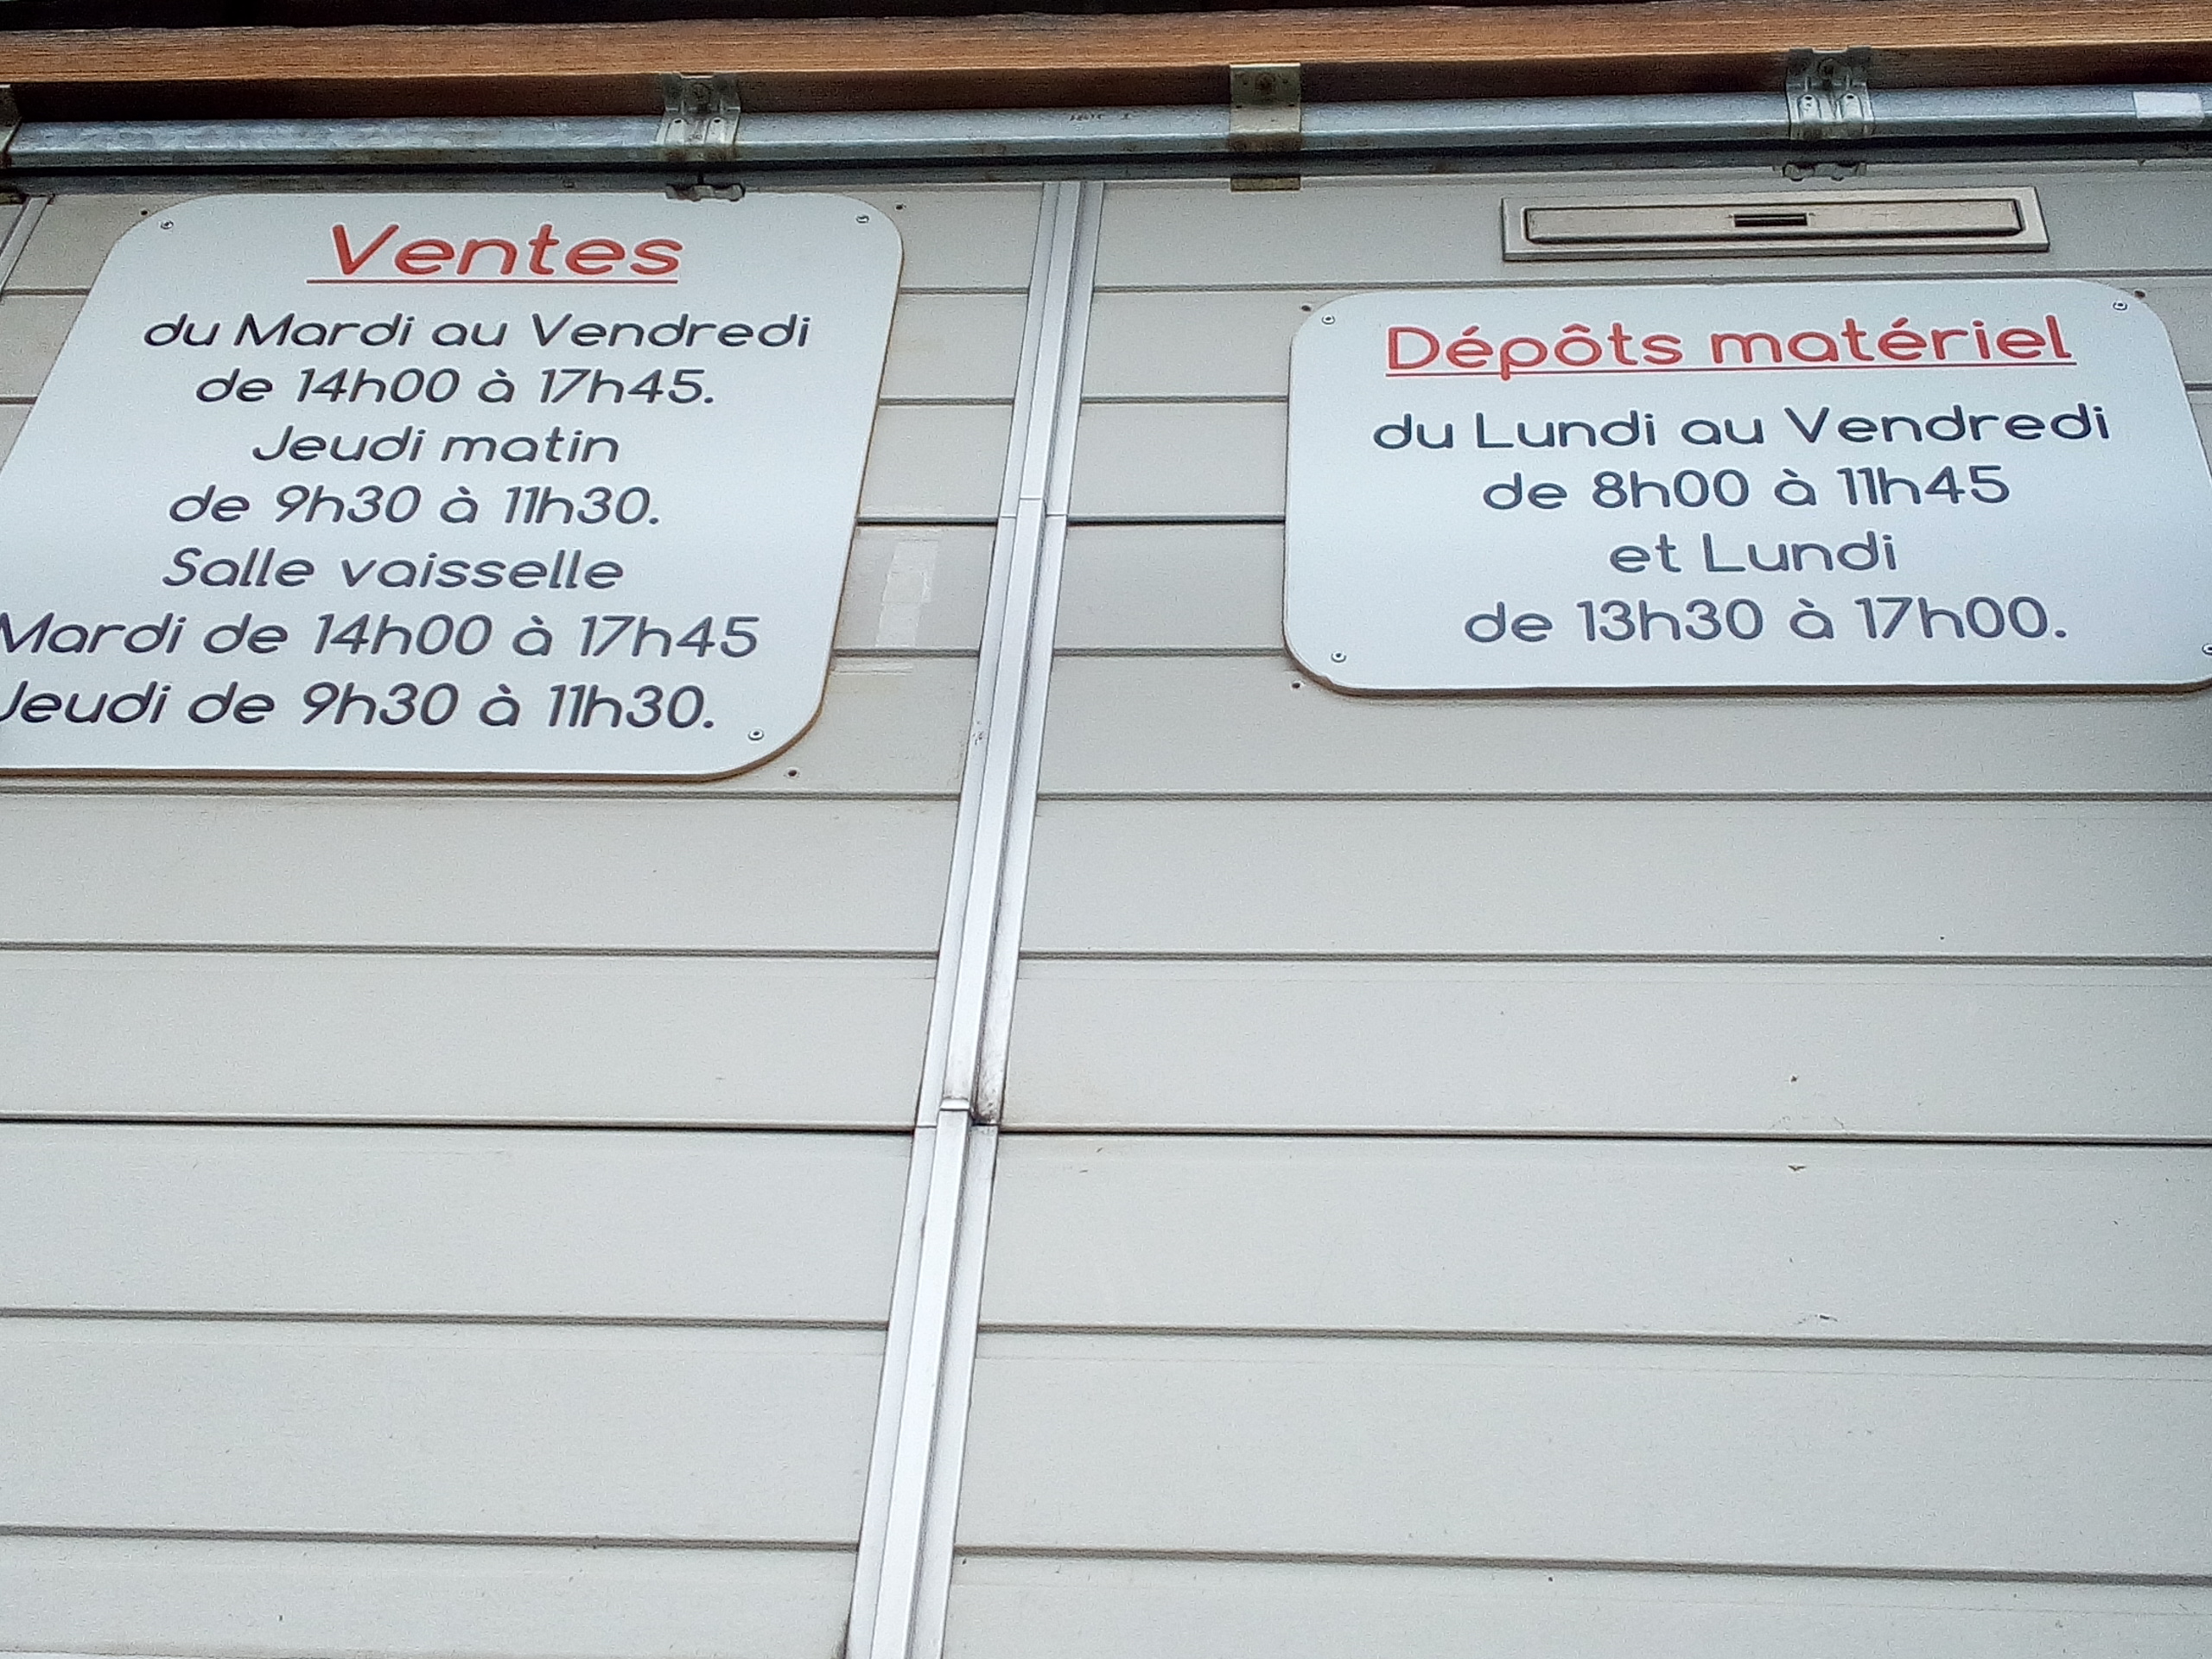 Ventes
du Mardi au Vendredi
de 14h00 à 17h45.
Jeudi matin
de 9h30 à 11h30.
Salle vaisselle
Mardi de 14h00 à 17h45
Jeudi de 9h30 à 11h30.
Dépôts matériel
du Lundi au Vendredi
de 8h00 à 11h45
et Lundi
de 13h30 à 17h00.